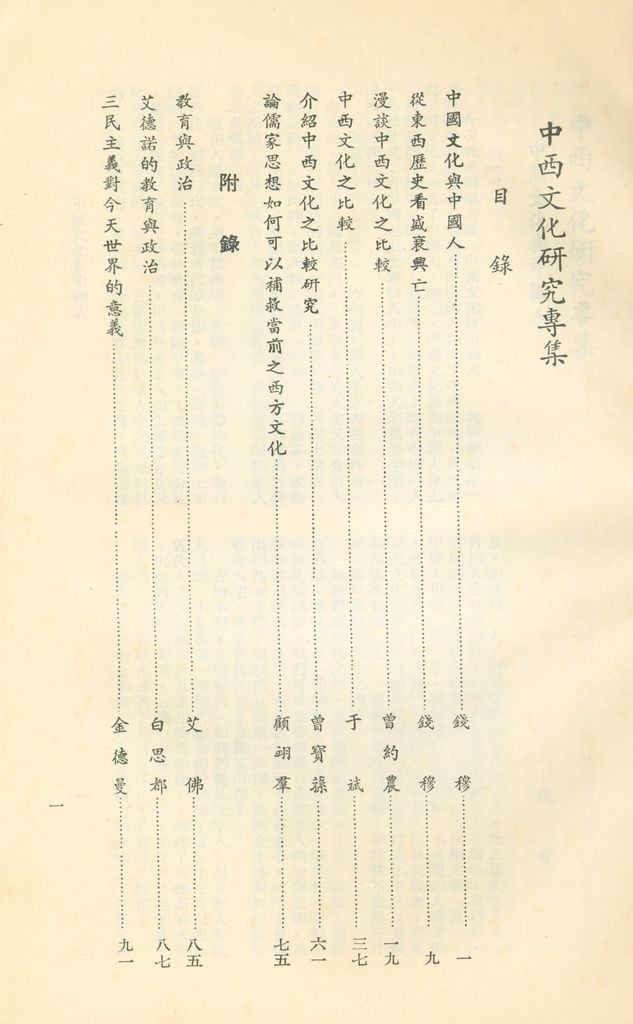 中西文化研究專集
目錄
中國文化與中國人 錢穆 一
從東西歷史看盛衰興亡 錢穆 九
漫談中西文化之比較 曾約農 一九
中西文化之比較 于斌 三七
介紹中西文化之比較研究 曾寶蓀 六一
論儒家思想如何可以補救當前之西方文化 顧翊羣 七五
附錄
教育與政治 艾佛 八五
艾德諾的教育與政治 白思都 八七
三民主義對今天世界的意義 金德曼 九一
一